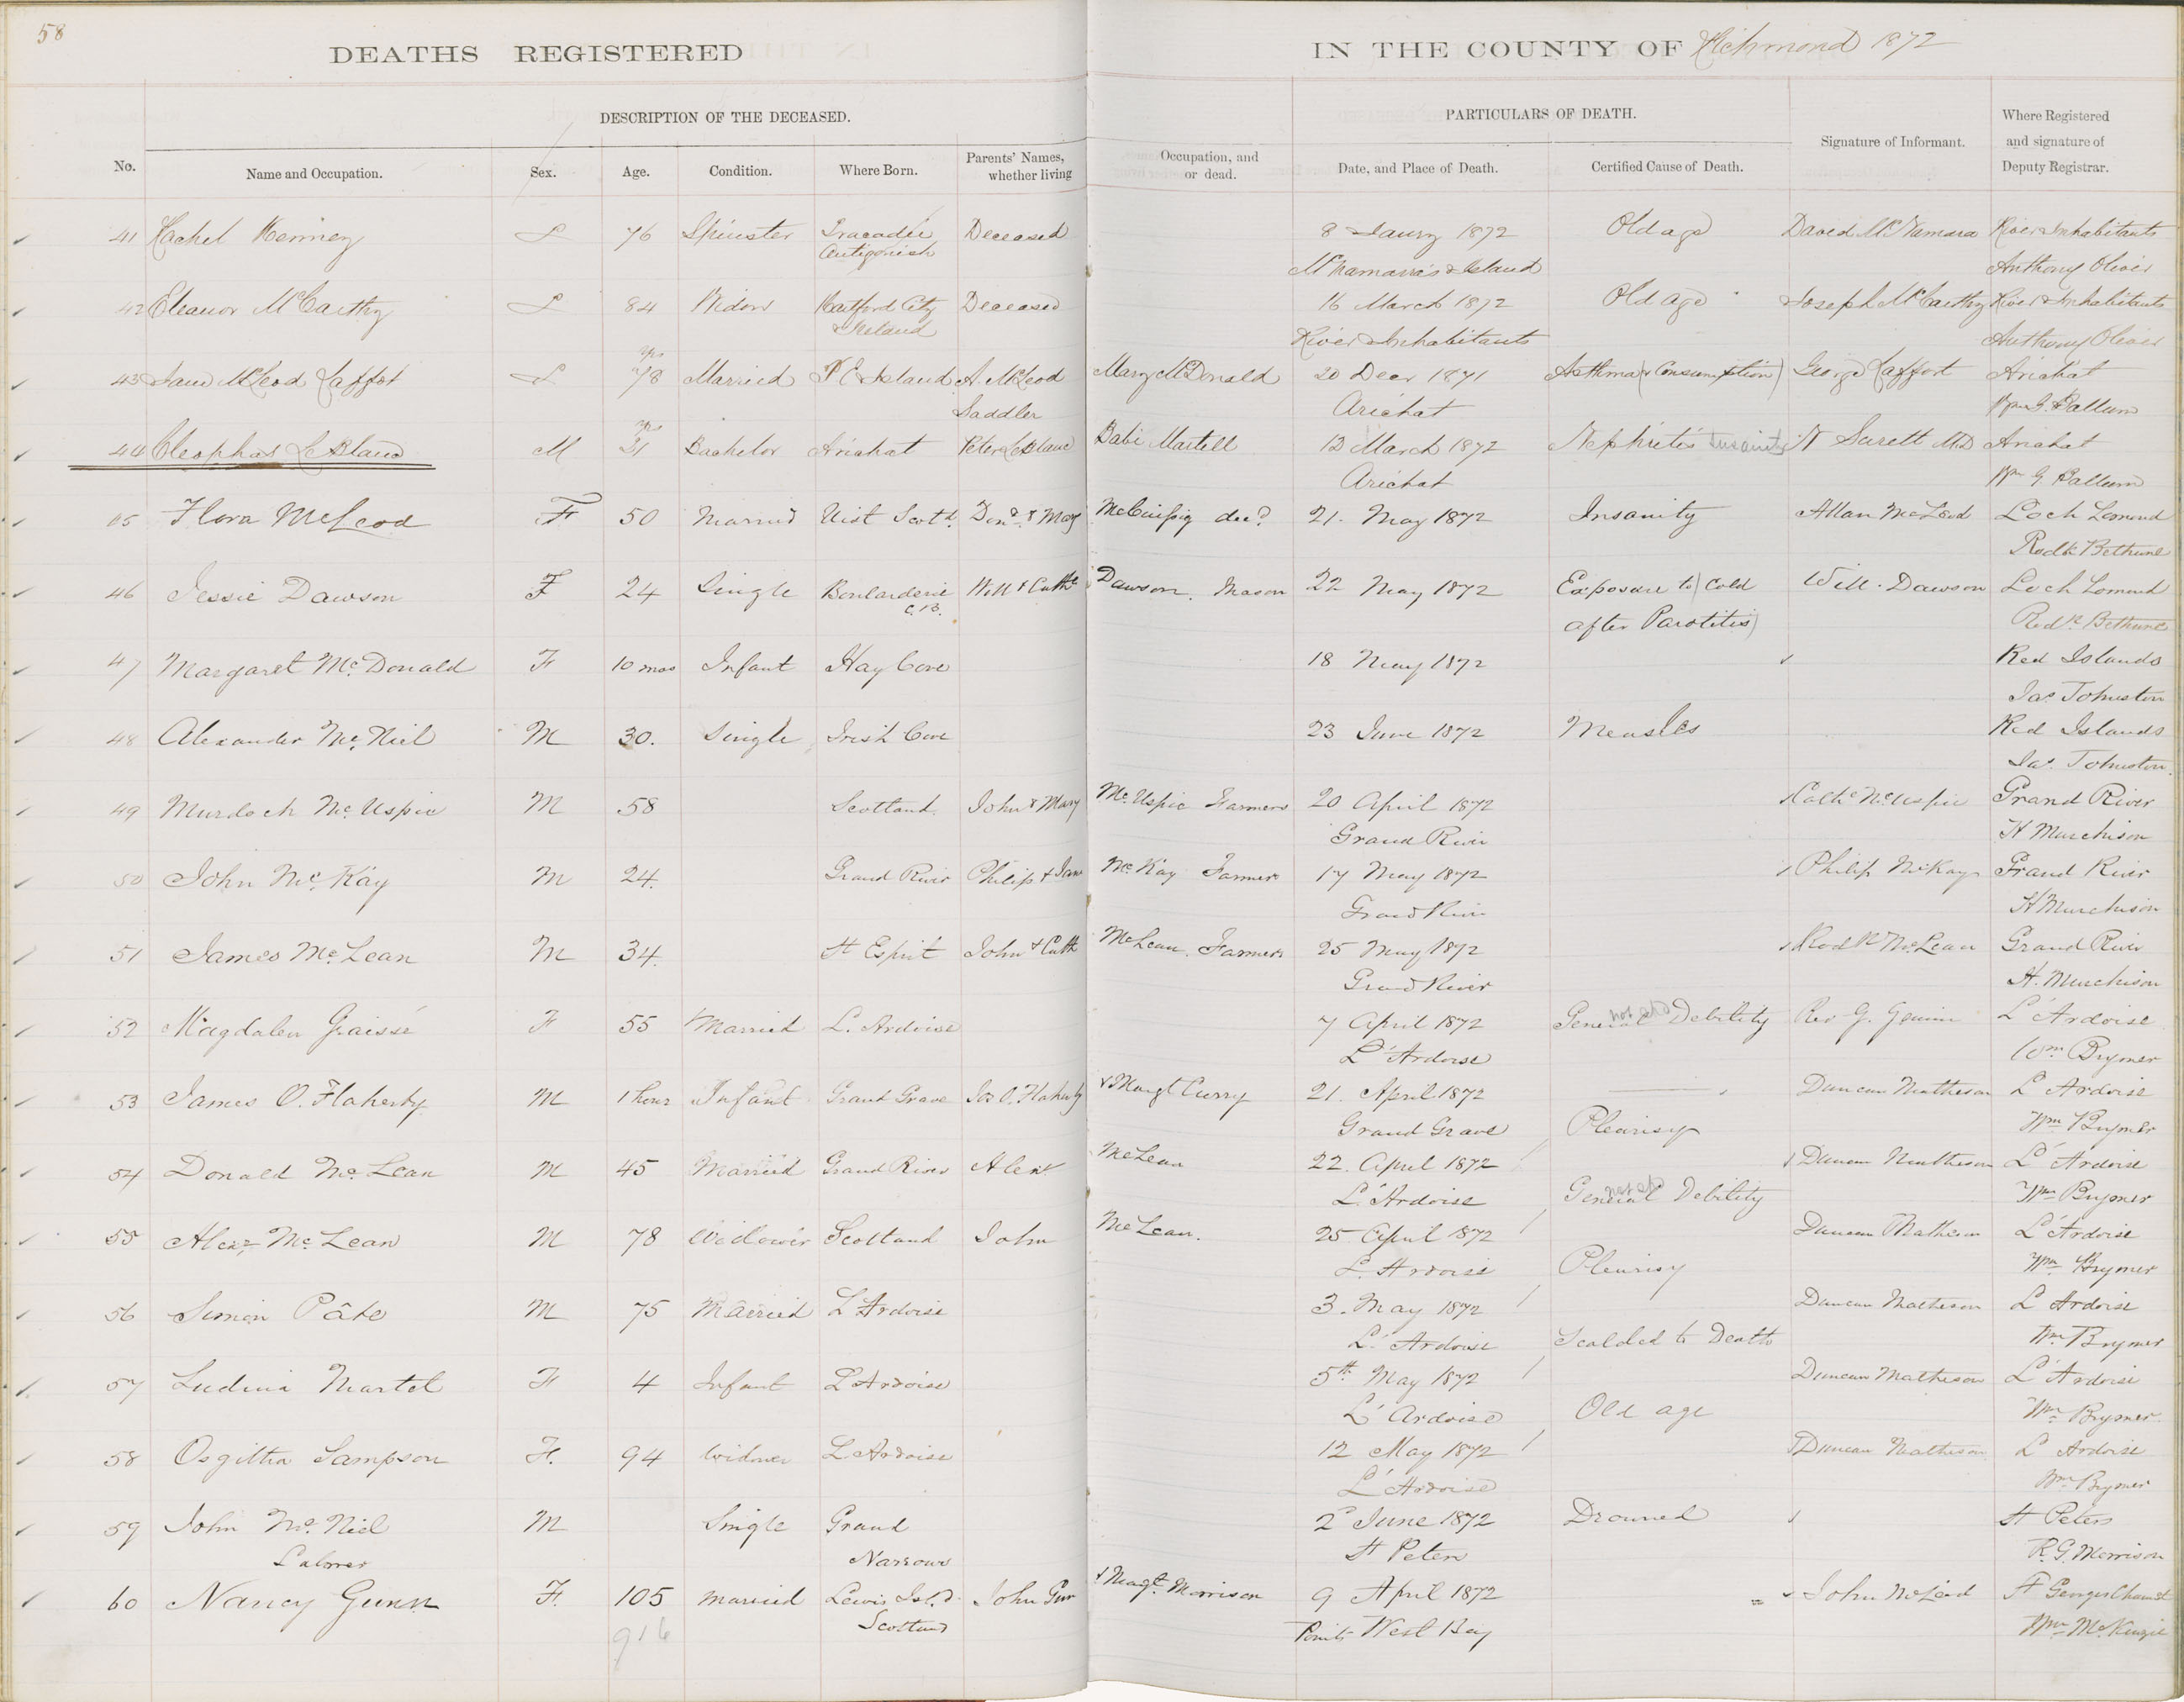 58
DEATHS REGISTERED IN THE COUNTY OF Richmond 1872
DESCRIPTION OF THE DECEASED. PARTICULARS OF DEATH.
No. Name and Occupation. Sex. Age. Condition. Where Born. Parents' Names, whether living Occupation, and or dead. Date, and Place of Death. Certified Cause of Death. Signature of Informant. Where Registered and signature of Deputy Registrar.
41 Rachel Kenney F 76 Spinster Tracadie Deceased 8 Jany 1872 Old age David McNamara River Inhabitants
Antigonish McNamara's Island Anthony Oliver
42 Eleanor McCarthy F 84 Widow City Deceased 16 March 1872 Old age Joseph McCarthy River Inhabitants
Ireland River Inhabitants Anthony Oliver
43 Jane McLeod Laffort F yrs 78 Married P E Island A. McLeod Mary McDonald 20 Decr 1871 Asthma (Consumption) George Laffort Arichat
Saddler Arichat Wm G. Ballum
44 Cleophas LeBlanc M yrs 21 Bachelor Arichat Peter LeBlanc Babi Martell 12 March 1872 Nephritis Insanity Surett MD Arichat
Arichat Wm G Ballum
45 Flora McLeod F 50 Married Uist Scotd. Dond. & Mary McCuissig dec? 21. May 1872 Insanity Allan McLeod Loch Lomond
Rodk Bethune
46 Jessie Dawson F 24 Single Boularderie Will & Cathe Dawson. Mason 22 May 1872 Exposure to cold Will. Dawson Loch Lomond
C.B. after Parotitis) Rodk Bethune
47 Margaret McDonald F 10 mos Infant Hay Cove 18 May 1872 Red Islands
Jas Johnston
48 Alexander McNiel M 30. Single Irish Cove 23 June 1872 Measles Red Islands
Jas. Johnston.
49 Murdoch McUspic M 58 Scotland. John & Mary McUspic Farmers 20 April 1872 Cathe McUspic Grand River
Grand River H Murchison
50 John McKay M 24. Grand River Philip & Jane McKay Farmers 17 May 1872 Philip McKay Grand River
Grand River H Murchison
51 James McLean M 34. St Esprit John & Cath McLean. Farmers 25 May 1872 Rodk McLean Grand River
Grand River H. Murchison
52 Magdalen Graissé F 55 Married L. Ardoise 7 April 1872 General Debility Rev G. L'Ardoise
L'Ardoise Wm Brymer
53 James O. Flaherty M 1 hour Infant Grand Grave Jas O. Flaherty & Margt Curry 21. April 1872 Duncan Matheson L Ardoise
Grand Grave Pleurisy Wm Brymer
54 Donald McLean M 45 Married Grand River Alexr McLean 22. April 1872 Duncan Matheson L' Ardoise
L'Ardoise General Debility Wm Brymer
55 Alexr McLean M 78 Widower Scotland John McLean. 25 April 1872 Duncan Matheson L'Ardoise
L. Ardoise Pleurisy Wm Brymer
56 Simon Pâte M 75 Married L'Ardoise 3. May 1872 Duncan Matheson L Ardoise
L' Ardoise Scalded to Death Wm Brymer
57 Ludivia Martel F 4 Infant L'Ardoise 5th May 1872 Duncan Matheson L' Ardoise
L' Ardoise Old age Wm Brymer
58 Osgitha Sampson F. 94 Widower L'Ardoise 12 May 1872 Duncan Matheson L' Ardoise
L'Ardoise Wm Brymer
59 John McNiel M Single Grand 2 June 1872 Drowned St Peters
Labrer Narrows St Peters R.G. Morrison
60 Nancy Gunn F. 105 Married Lewis Isld. John Gun & Magt. Morrison 9 April 1872 John McLeod St Georges
916 Scotland Points West Bay Wm McKinzie